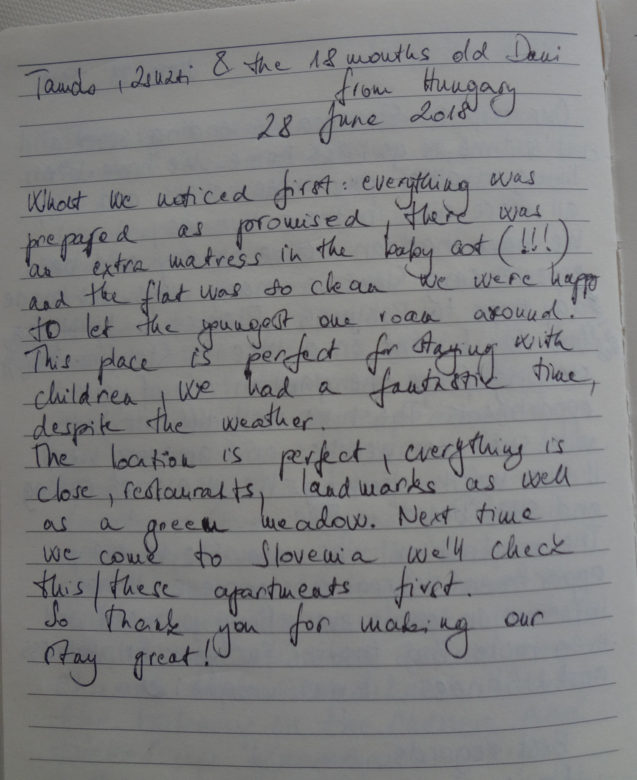 Tamás, Zsuzsi & the 18 months old Dani
from Hungary
28 June 2018
What we noticed first: everything was
prepared as promised, there was
an extra matress in the baby cot (!!!)
and the flat was so clean we were happy
to let the youngest one roam around.
This place is perfect for staying with
children, we had a fantastic time,
despite the weather.
The location is perfect, everything is
close, restaurants, landmarks as well
as a green meadow. Next time
we come to Slovenia we'll check
this/these apartments first.
So thank you for making our
stay great!